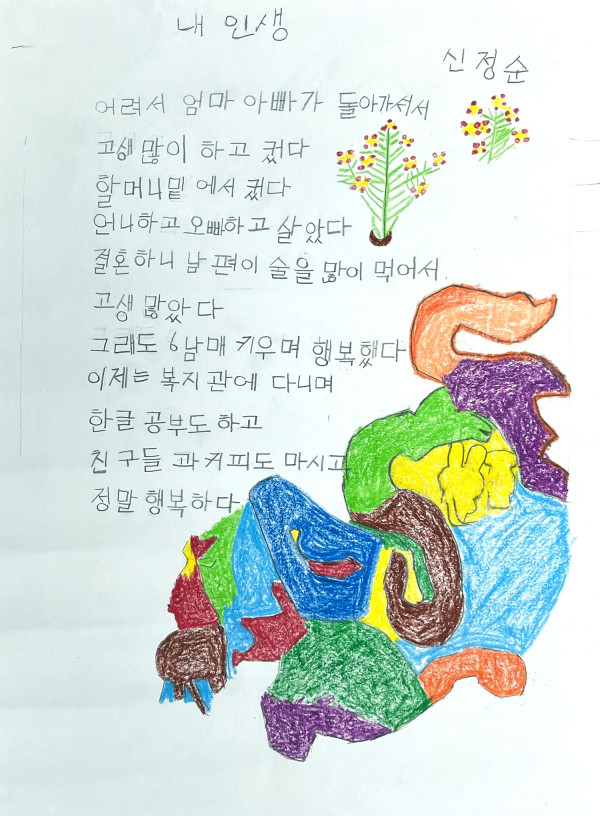 내 인생
신정순
어려서 엄마 아빠가 돌아가셔서
고생 많이 하고 컸다
할머니밑에서 컸다
언니하고 오빠하고 살았다
결혼하니 남편이 술을 많이 먹어서.
고생 많았다
그래도 6남매 키우며 행복했다
이제는 복지관에 다니며
한글 공부도 하고
친구들과 커피도 마시고
정말 행복하다